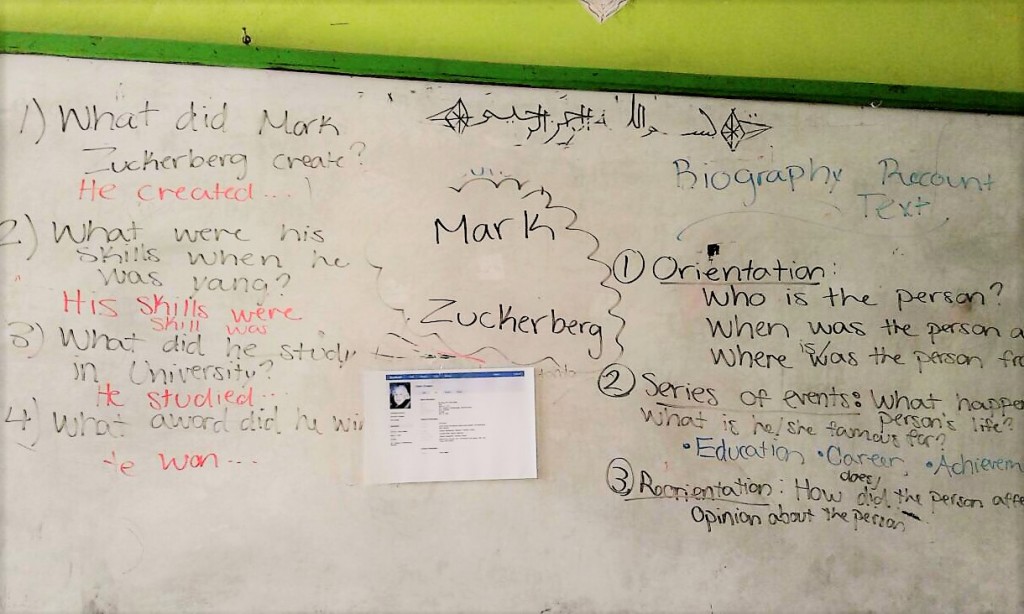 1) What did Mark
Zuckerberg create?
He created...
2) What were his
skills when he
was yang?
His skills were
skill was
3) What did he study
in University?
He studied...
4) What award did he win
He won...
بسم الله الرحمن الرحيم
Mark
Zuckerberg
Biography Recount
Text
① Orientation:
Who is the person?
When was the person a
is/
Where was the person fr
② Series of events: What happe
person's life?
What is he/she famous for?
• Education • Career, • Achievem
does/
③ Reorientation: How did the person affe
Opinion about the person